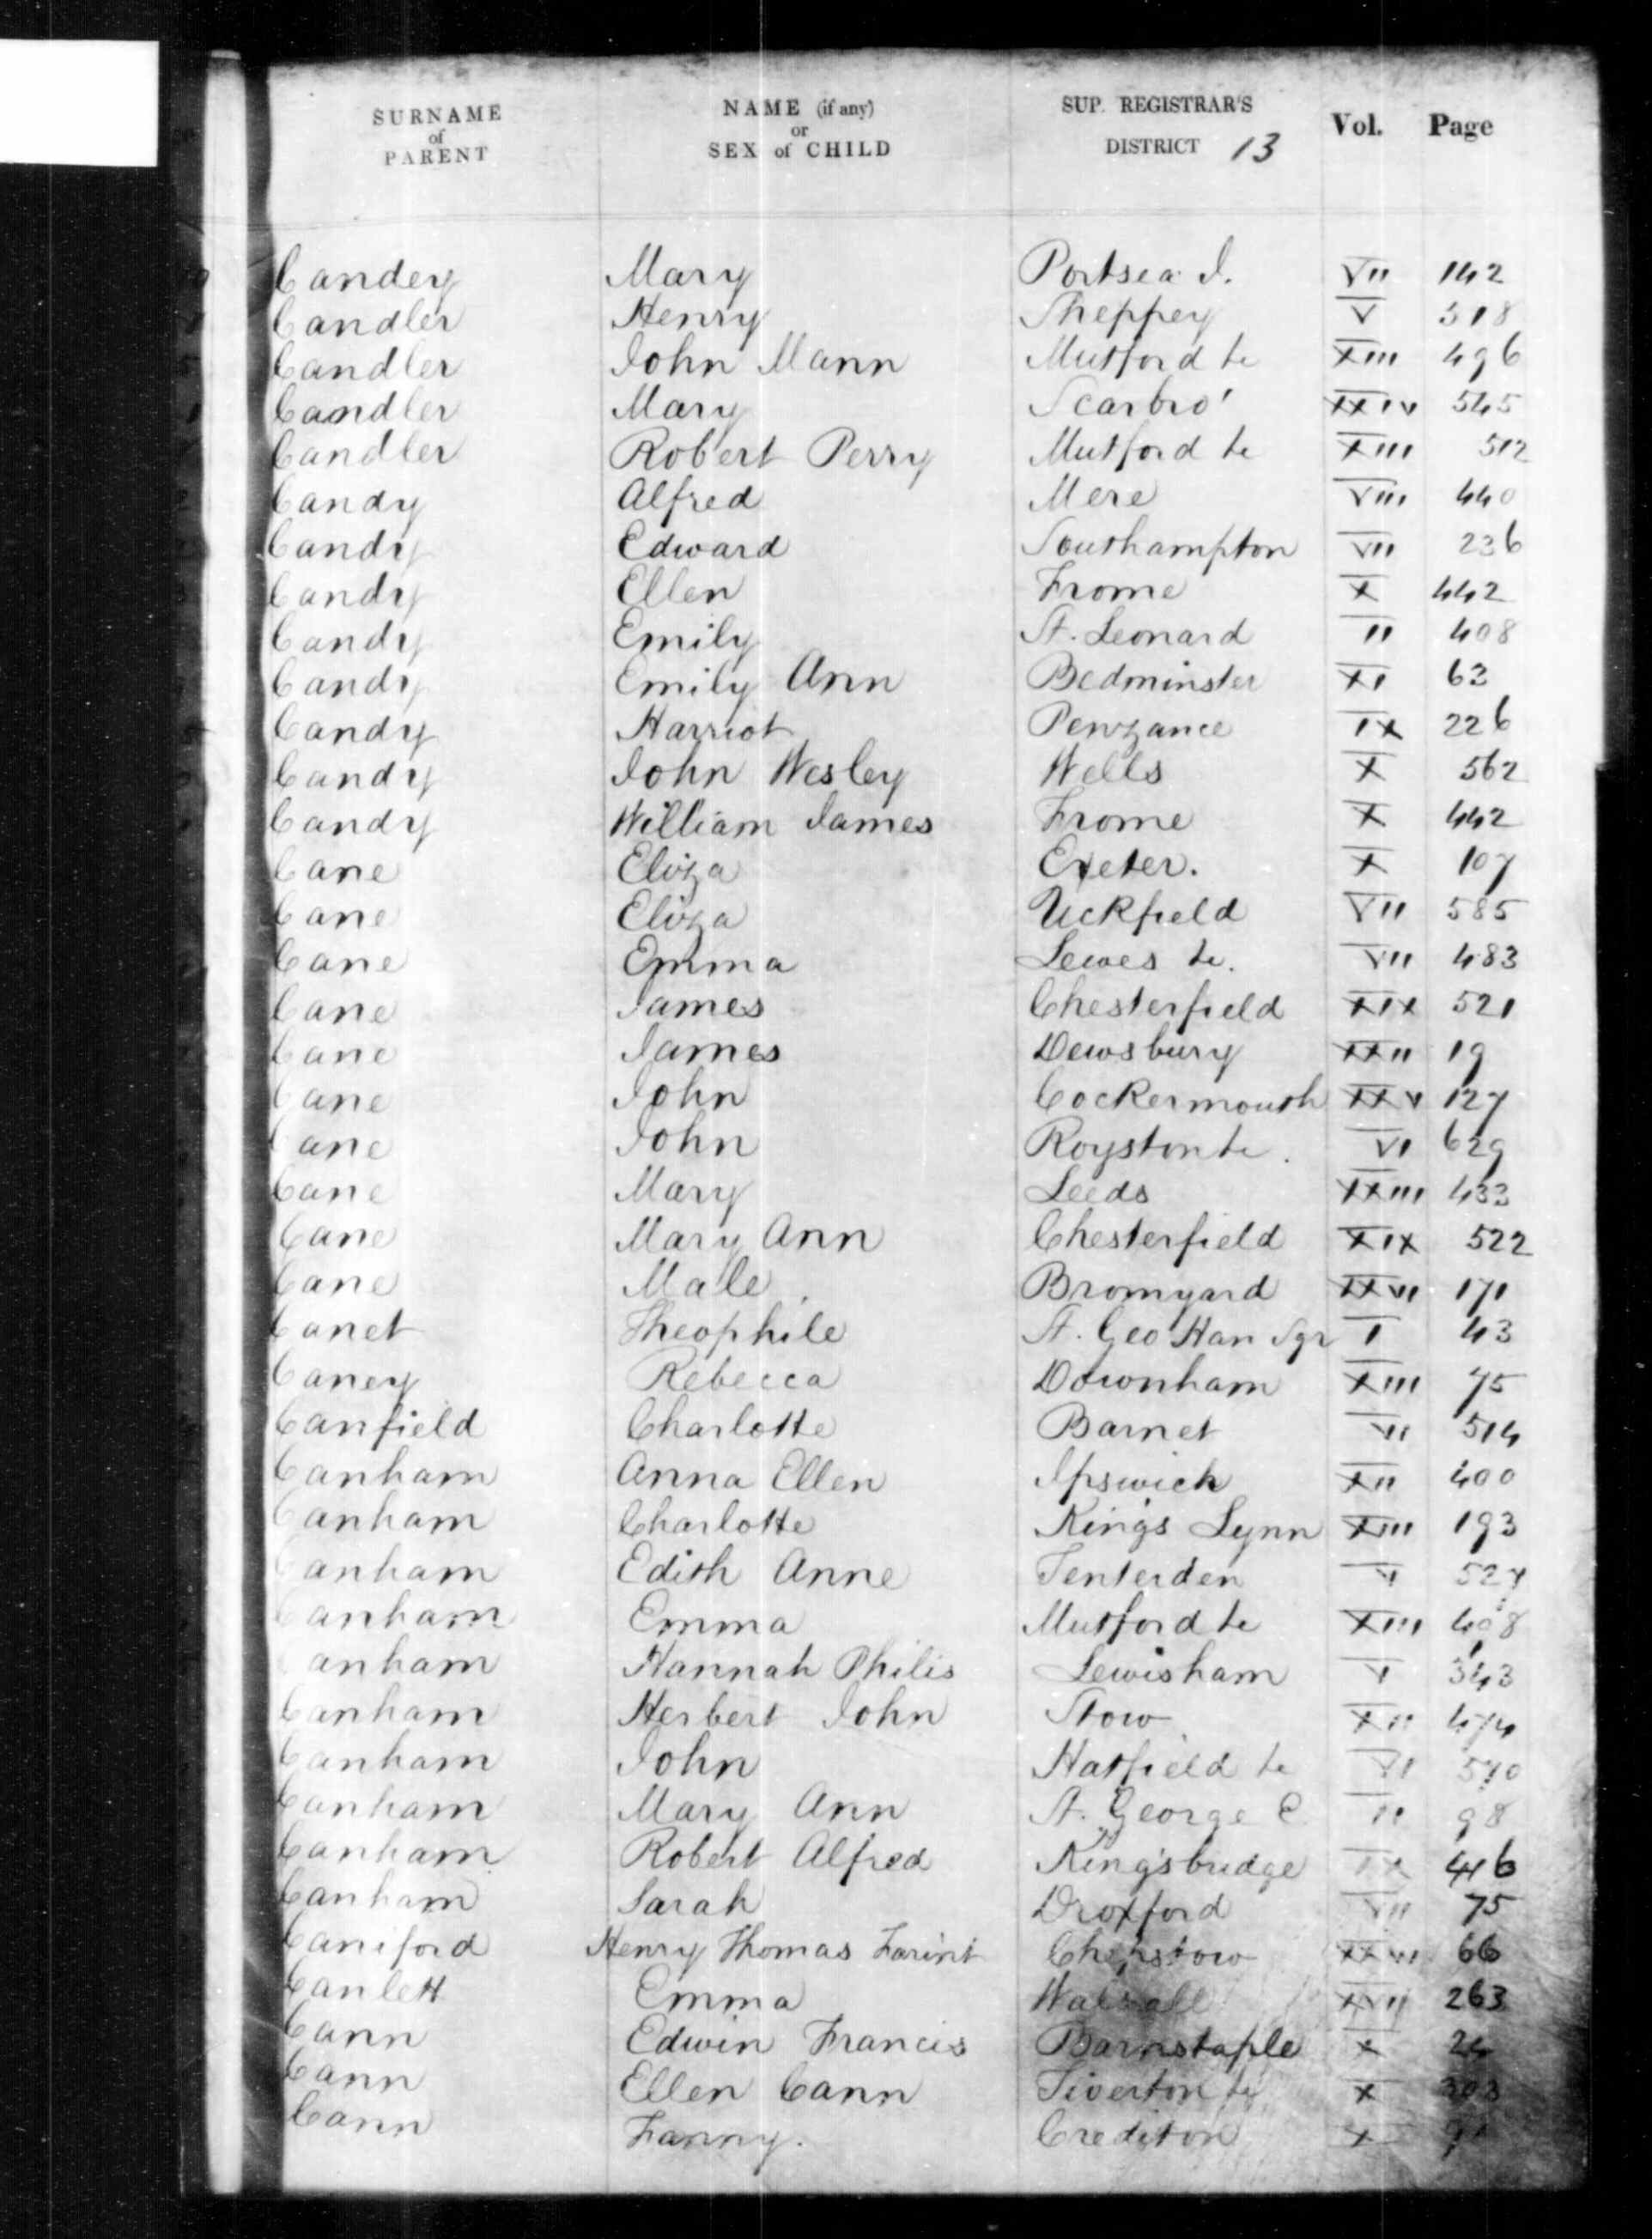 SURNAME of PARENT NAME (if any) or SEX of CHILD SUP. REGISTRAR'S DISTRICT 13 Vol. Page
Candey Mary Portsea I. VII 142
Candler Henry Sheppey V 318
Candler John Mann Mutford &c XIII 496
Candler Mary Scarbro' XXIV 545
Candler Robert Perry Mutford &c XIII 512
Candy Alfred Mere VIII 440
Candy Edward Southampton VII 236
Candy Ellen Frome X 442
Candy Emily St. Leonard II 408
Candy Emily Ann Bedminster XI 63
Candy Harriot Penzance IX 226
Candy John Wesley Wells X 562
Candy William James Frome X 442
Cane Eliza Exeter. X 107
Cane Eliza Uckfield VII 585
Cane Emma Lewes &c. VII 483
Cane James Chesterfield XIX 521
Cane James Dewsbury XXII 19
Cane John Cockermouth XXV 127
Cane John Royston &c. VI 629
Cane Mary Leeds XXIII 433
Cane Mary Ann Chesterfield XIX 522
Cane Male. Bromyard XXVI 171
Canet Theophile St. Geo Han Sqr I 43
Caney Rebecca Downham XIII 75
Canfield Charlotte Barnet 514
Canham Anna Ellen Ipswich XII 400
Canham Charlotte Kings Lynn XIII 193
Canham Edith Anne Tenterden V
Canham Emma Mutford &c XIII 408
Canham Hannah Philis Lewisham V 343
Canham Herbert John Stow XII 474
Canham John Hatfield &c VI 570
Canham Mary Ann St. George E II 98
Canham Robert Alfred Kingsbridge IX 416
Canham Sarah Droxford VII 75
Caniford Henry Thomas Farint Chepstow XXVI 66
Canlett Emma Walsall XVII 263
Cann Edwin Francis Barnstaple X
Cann Ellen Cann Tiverton &c X 303
Cann Fanny. Crediton X